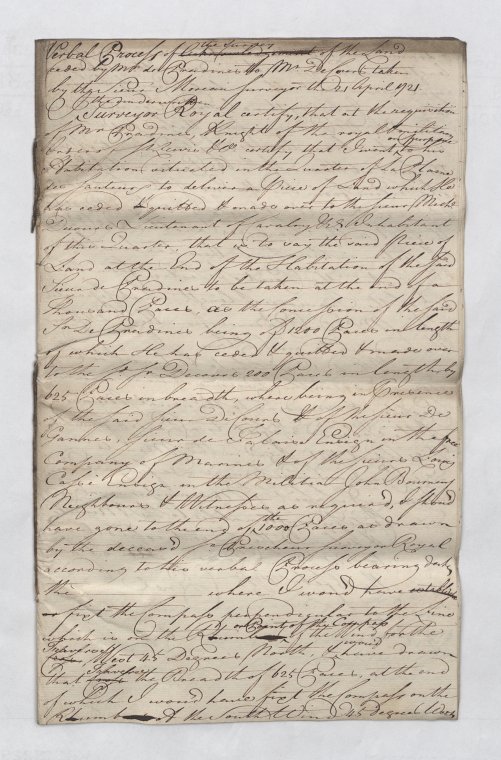 Verbal Process of the Survey of the Land
ceded by Mr de Pradines to Mr Decours taken
by the Sieur Moreau Surveyor the 21 April 1721
I the undersigned
Surveyor Royal certify, that at the requisition
of Mr Pradines, Knight of the royal & military
order of St Lewis &ca certify that I went to the
Habitation situated in the quarter of La Basse
to deliver a Piece of Land which He
has ceded & quitted & made over to the Sieur
Decours Lieutenant of Cavalry & Inhabitant
of this Quarter, that is to say the said Piece of
Land at the End of the Habitation of the said
Sieur de Pradines to be taken at the end of a
Thousand Paces as the Concession of the said
Sr De Pradines being of 1200 Paces in length
of which He has ceded & quitted & made over
to the Sr Decours 200 Paces in length by
625 Paces in breadth, where being in Presence
of the said Sieur & of the Sieur de
Sieur de Ensign in the free
Company of Marines & of the Sieurs Louis
in the Militia John
Neighbours & Witnesses as required, I should
have gone to the end of the 1000 Paces as drawn
by the deceased Surveyor Royal
according to the verbal Process bearing date
the where I wou'd have
fixt the Compass perpendicular to the Line
which is on the Rhumb or Point of the Compass of the Wind for the
West 45 Degrees North & have drawn
that Traverse the Breadth of 625 Paces, at the end
of which I wou'd have fixt the Compass on the
Rhumb of the South Wind 45 degrees West